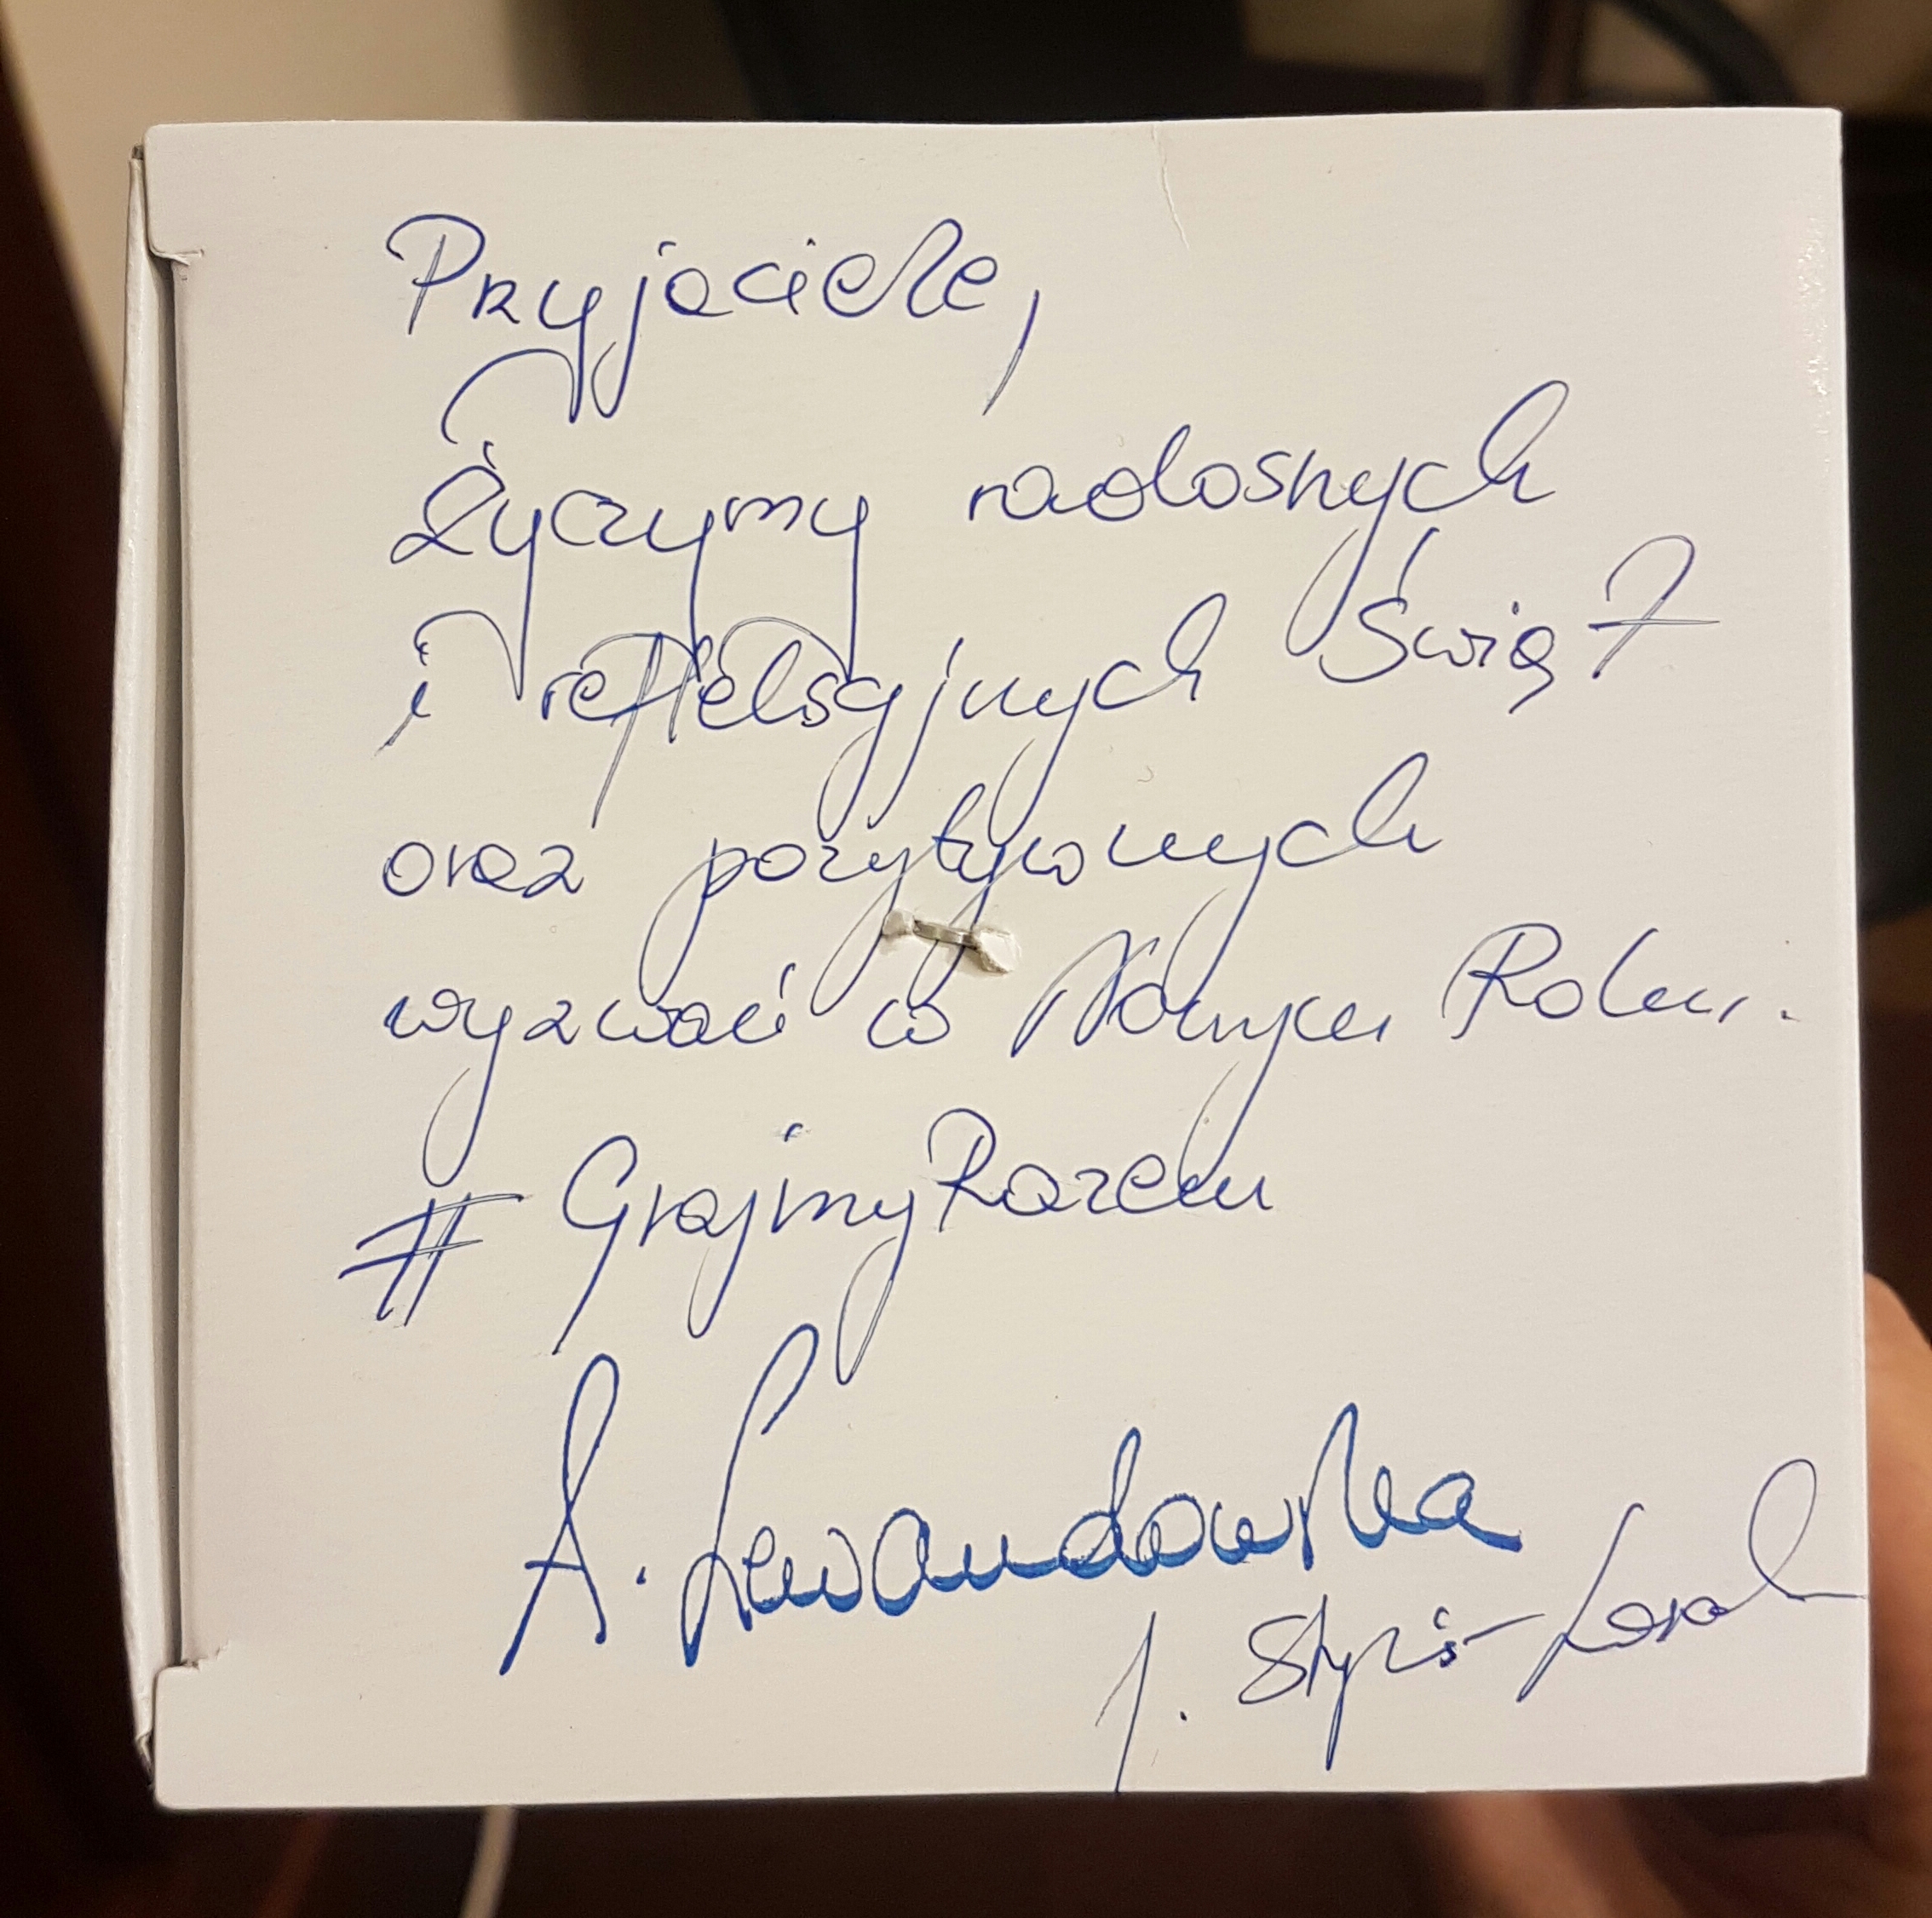 Przyjaciele,
Życzymy radosnych
i refleksyjnych Świąt
oraz pozytywnych
wyzwań w Nowym Roku.
#GrajmyRazem
A. Lewandowska
J.